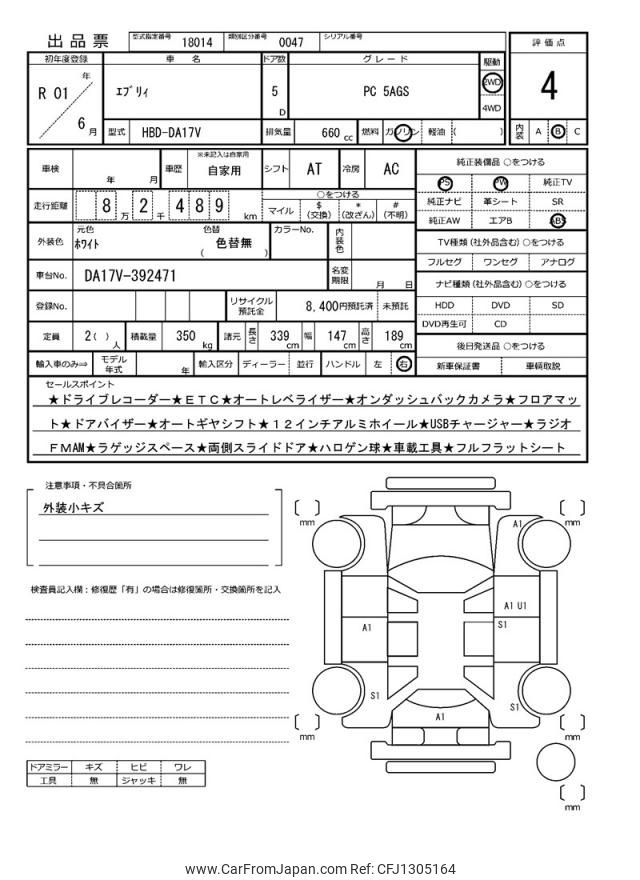 出品票 型式指定番号 18014 類別区分番号 0047 シリアル番号
初年度登録 車 名 ドア数 グレード 駆動 評価点
R 01 年 6 月 エブリィ 5 D PC 5AGS 2WD 4WD 4
型式 HBD-DA17V 排気量 660 cc 燃料 ガソリン 軽油 ( ) 内装 A B C
車検 年 月 車歴 ※未記入は自家用 自家用 シフト AT 冷房 AC 純正装備品 ○をつける
PS PW 純正TV
走行距離 8 万 2 千 4 8 9 km ○をつける 純正ナビ 革シート SR
マイル $ (交換) * (改ざん) # (不明) 純正AW エアB ABS
外装色 元色 ホワイト 色替 色替無 ( ) カラーNo. 内装色 TV種類 (社外品含む) ○をつける
フルセグ ワンセグ アナログ
車台No. DA17V-392471 名変期限 月 日 ナビ種類 (社外品含む) ○をつける
登録No. リサイクル預託金 8,400円預託済 未預託 HDD DVD SD
DVD再生可 CD
定員 2( ) 人 積載量 350 kg 諸元 長さ 339 cm 幅 147 cm 高さ 189 cm 後日発送品 ○をつける
輸入車のみ⇒ モデル年式 年 輸入区分 ディーラー 並行 ハンドル 左 右 新車保証書 車輌取説
セールスポイント
★ドライブレコーダー★ETC★オートレベライザー★オンダッシュバックカメラ★フロアマッ
ト★ドアバイザー★オートギヤシフト★12インチアルミホイール★USBチャージャー★ラジオ
FMAM★ラゲッジスペース★両側スライドドア★ハロゲン球★車載工具★フルフラットシート
注意事項・不具合箇所
外装小キズ
検査員記入欄:修復歴「有」の場合は修復箇所・交換箇所を記入
mm mm
A1
A1 U1
A1 S1
S1 S1
A1
mm mm
mm
ドアミラー キズ ヒビ ワレ
工具 無 ジャッキ 無
www.CarFromJapan.com Ref: CFJ1305164